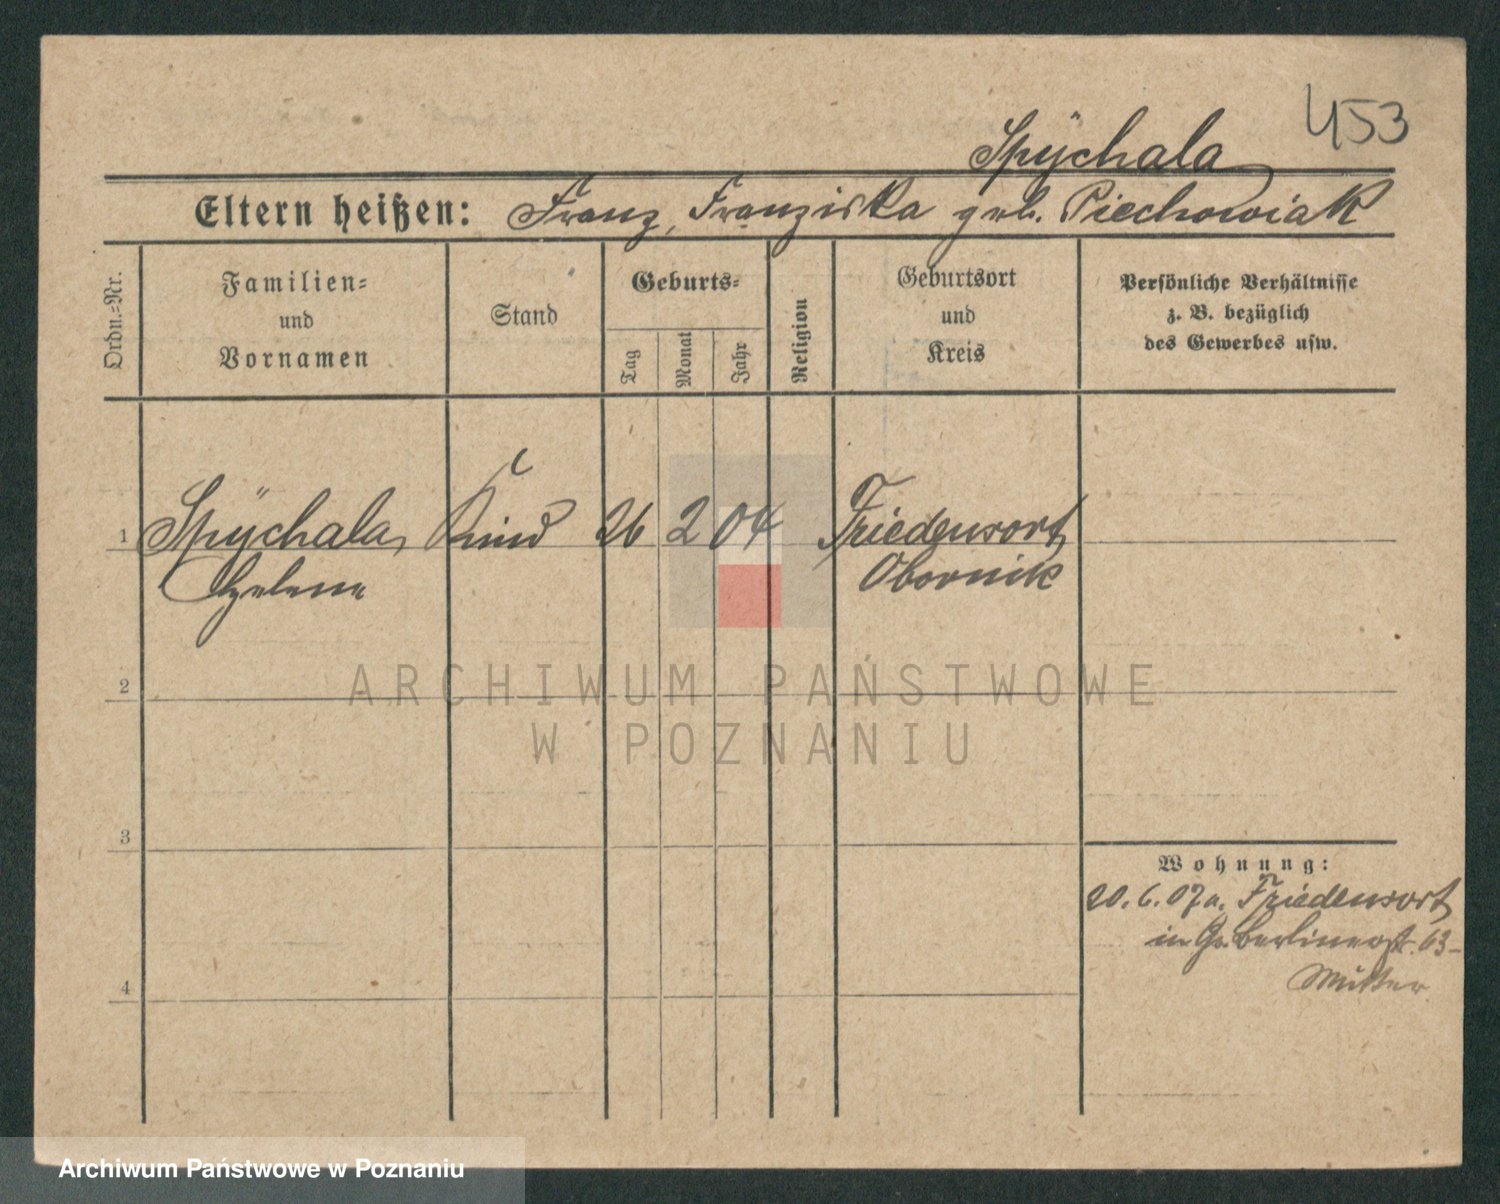 453
Spÿchala
Eltern heißen: Franz, Franziska geb. Piechowiak
Ordn.-Nr.
Familien-
und
Vornamen
Stand
Geburts-
Tag
Monat
Jahr
Religion
Geburtsort
und
Kreis
Persönliche Verhältnisse
z. B. bezüglich
des Gewerbes usw.
1 Spÿchala, Kind 26 2 04 Friedensort
Helene Obornik
2
ARCHIWUM PAŃSTWOWE
W POZNANIU
3
Wohnung:
20. 6. 07 a. Friedensort
in Gr. Berlinerstr. 63
Mutter
4
Archiwum Państwowe w Poznaniu